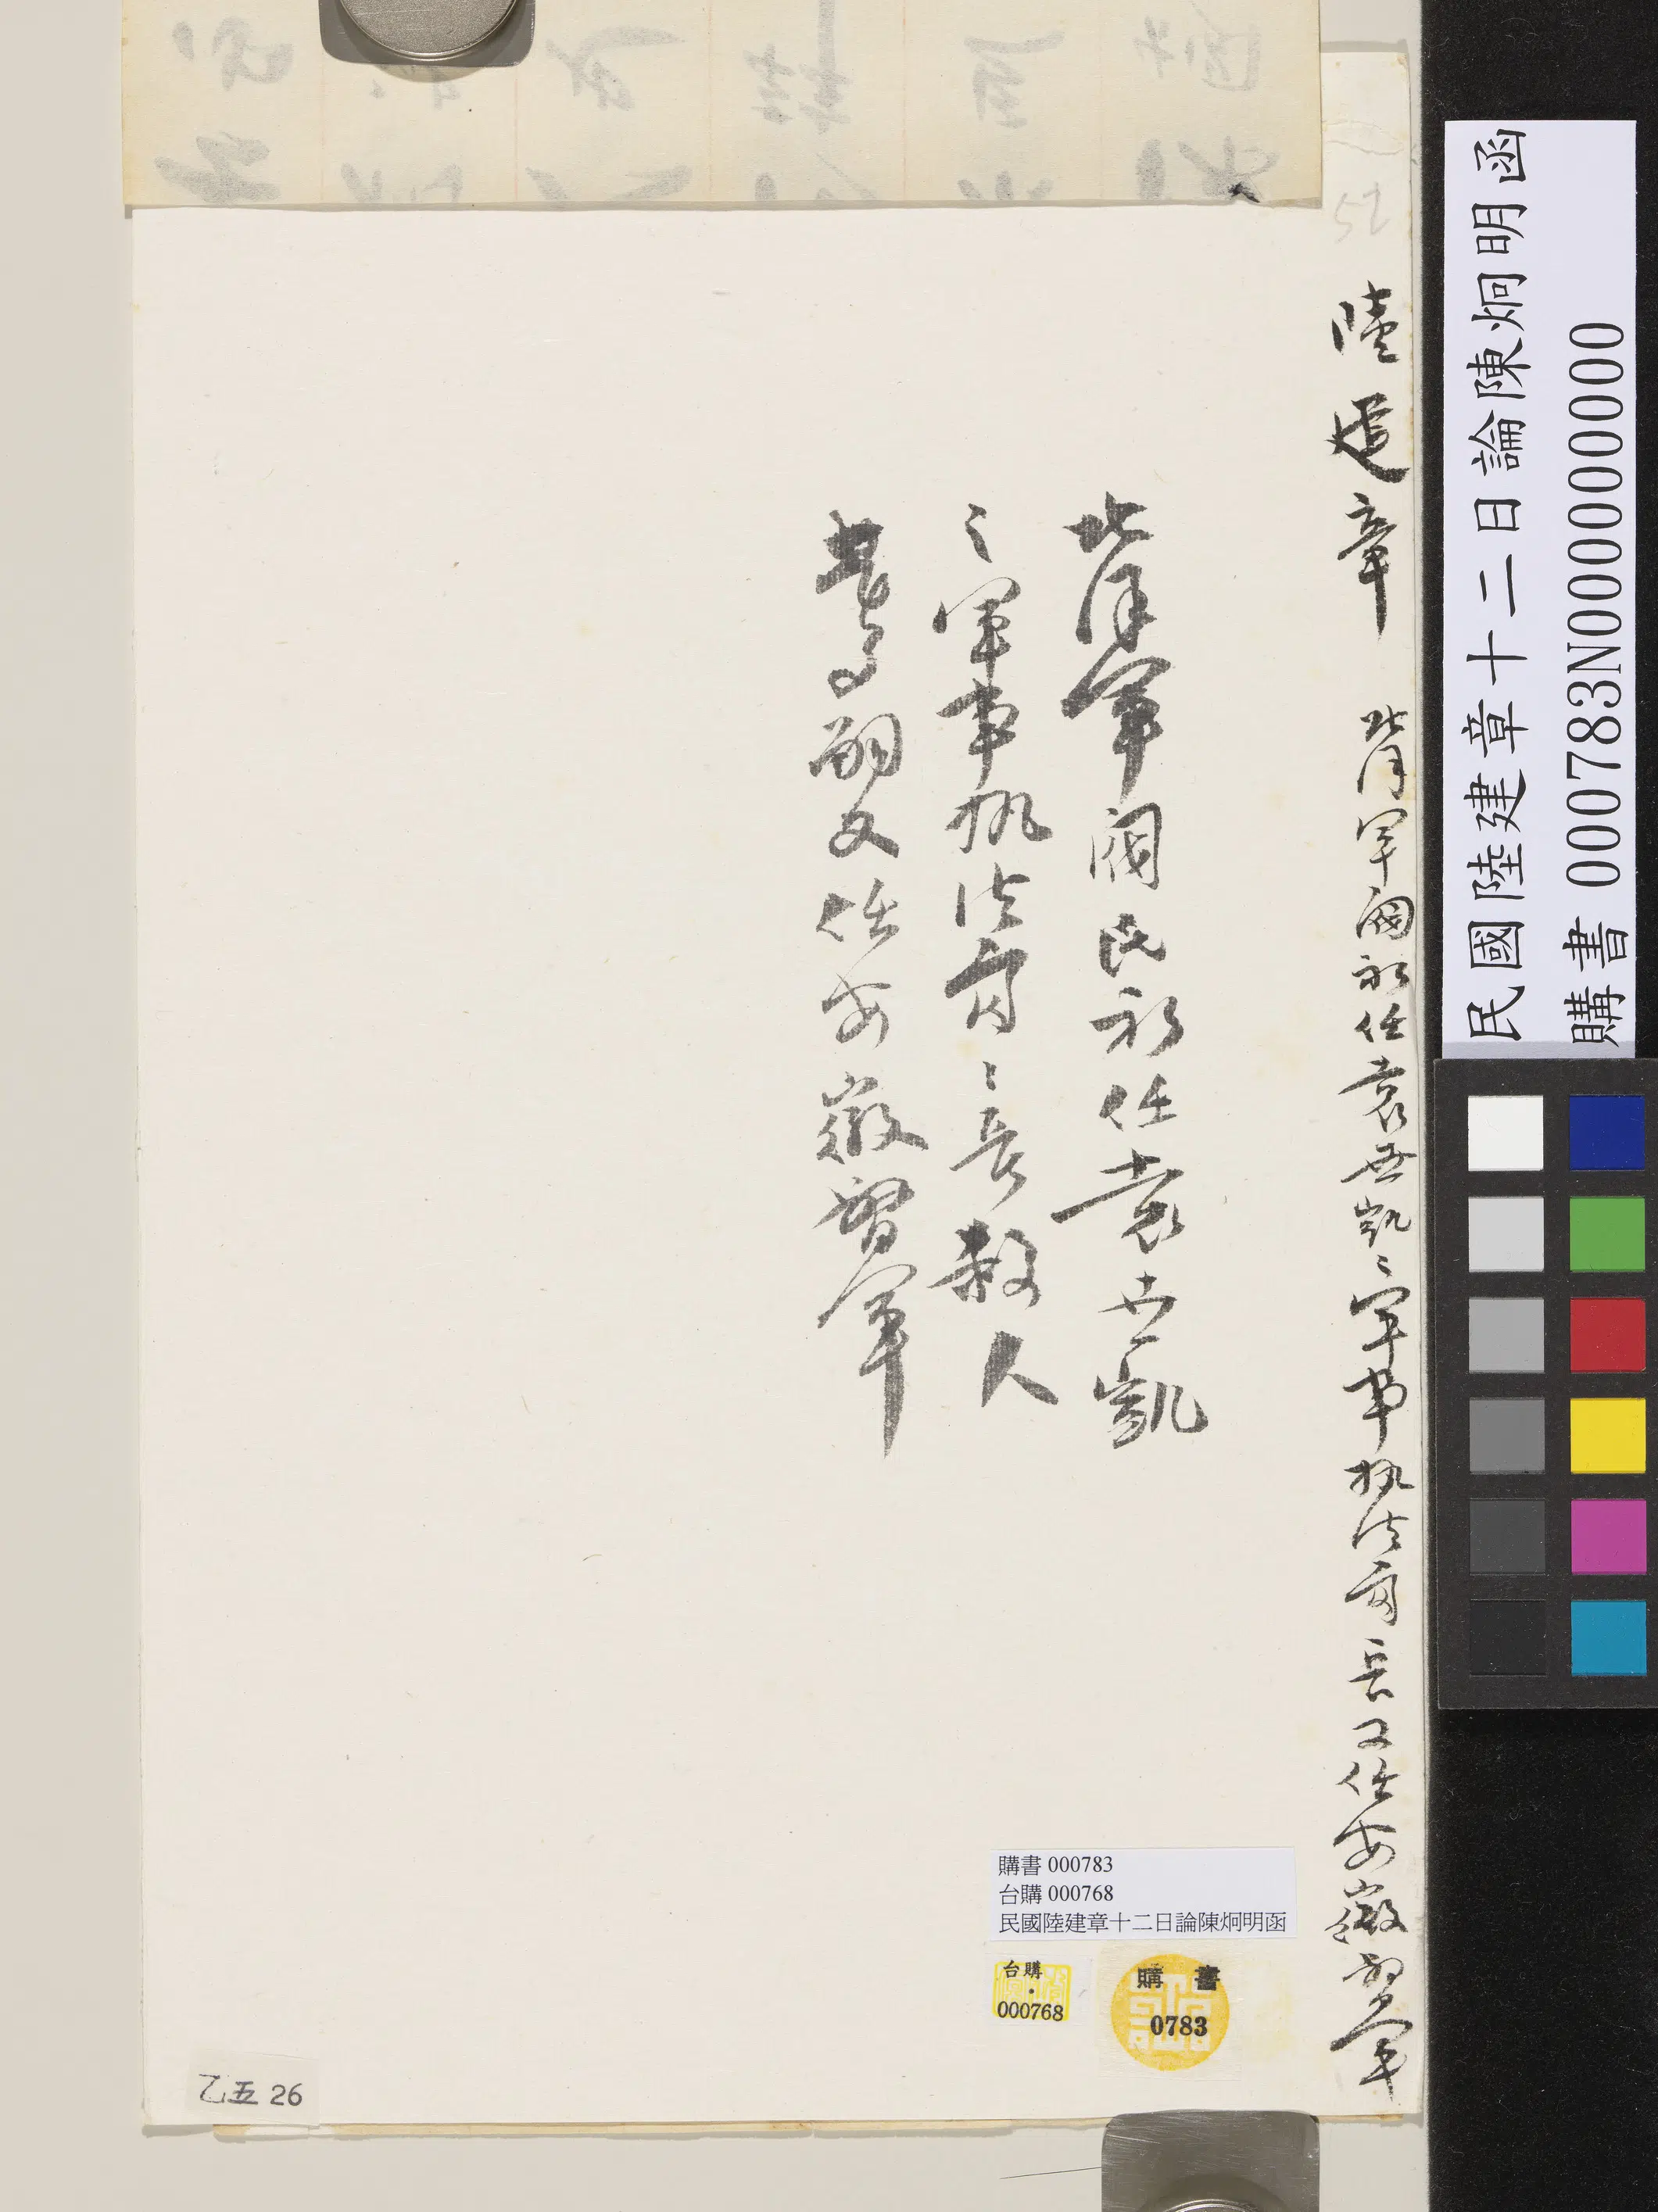 民國陸建章十二日論陳炯明函
購書 000783N000000000
52
陸建章 北洋軍閥初任袁世凱之軍事执法處長又任安徽督軍
北洋軍閥民初任袁世凱
之軍事执法處〻長殺人
甚多嗣又任安徽督軍
購書 000783
台購 000768
民國陸建章十二日論陳炯明函
台購
000768
購書
0783
乙五 26